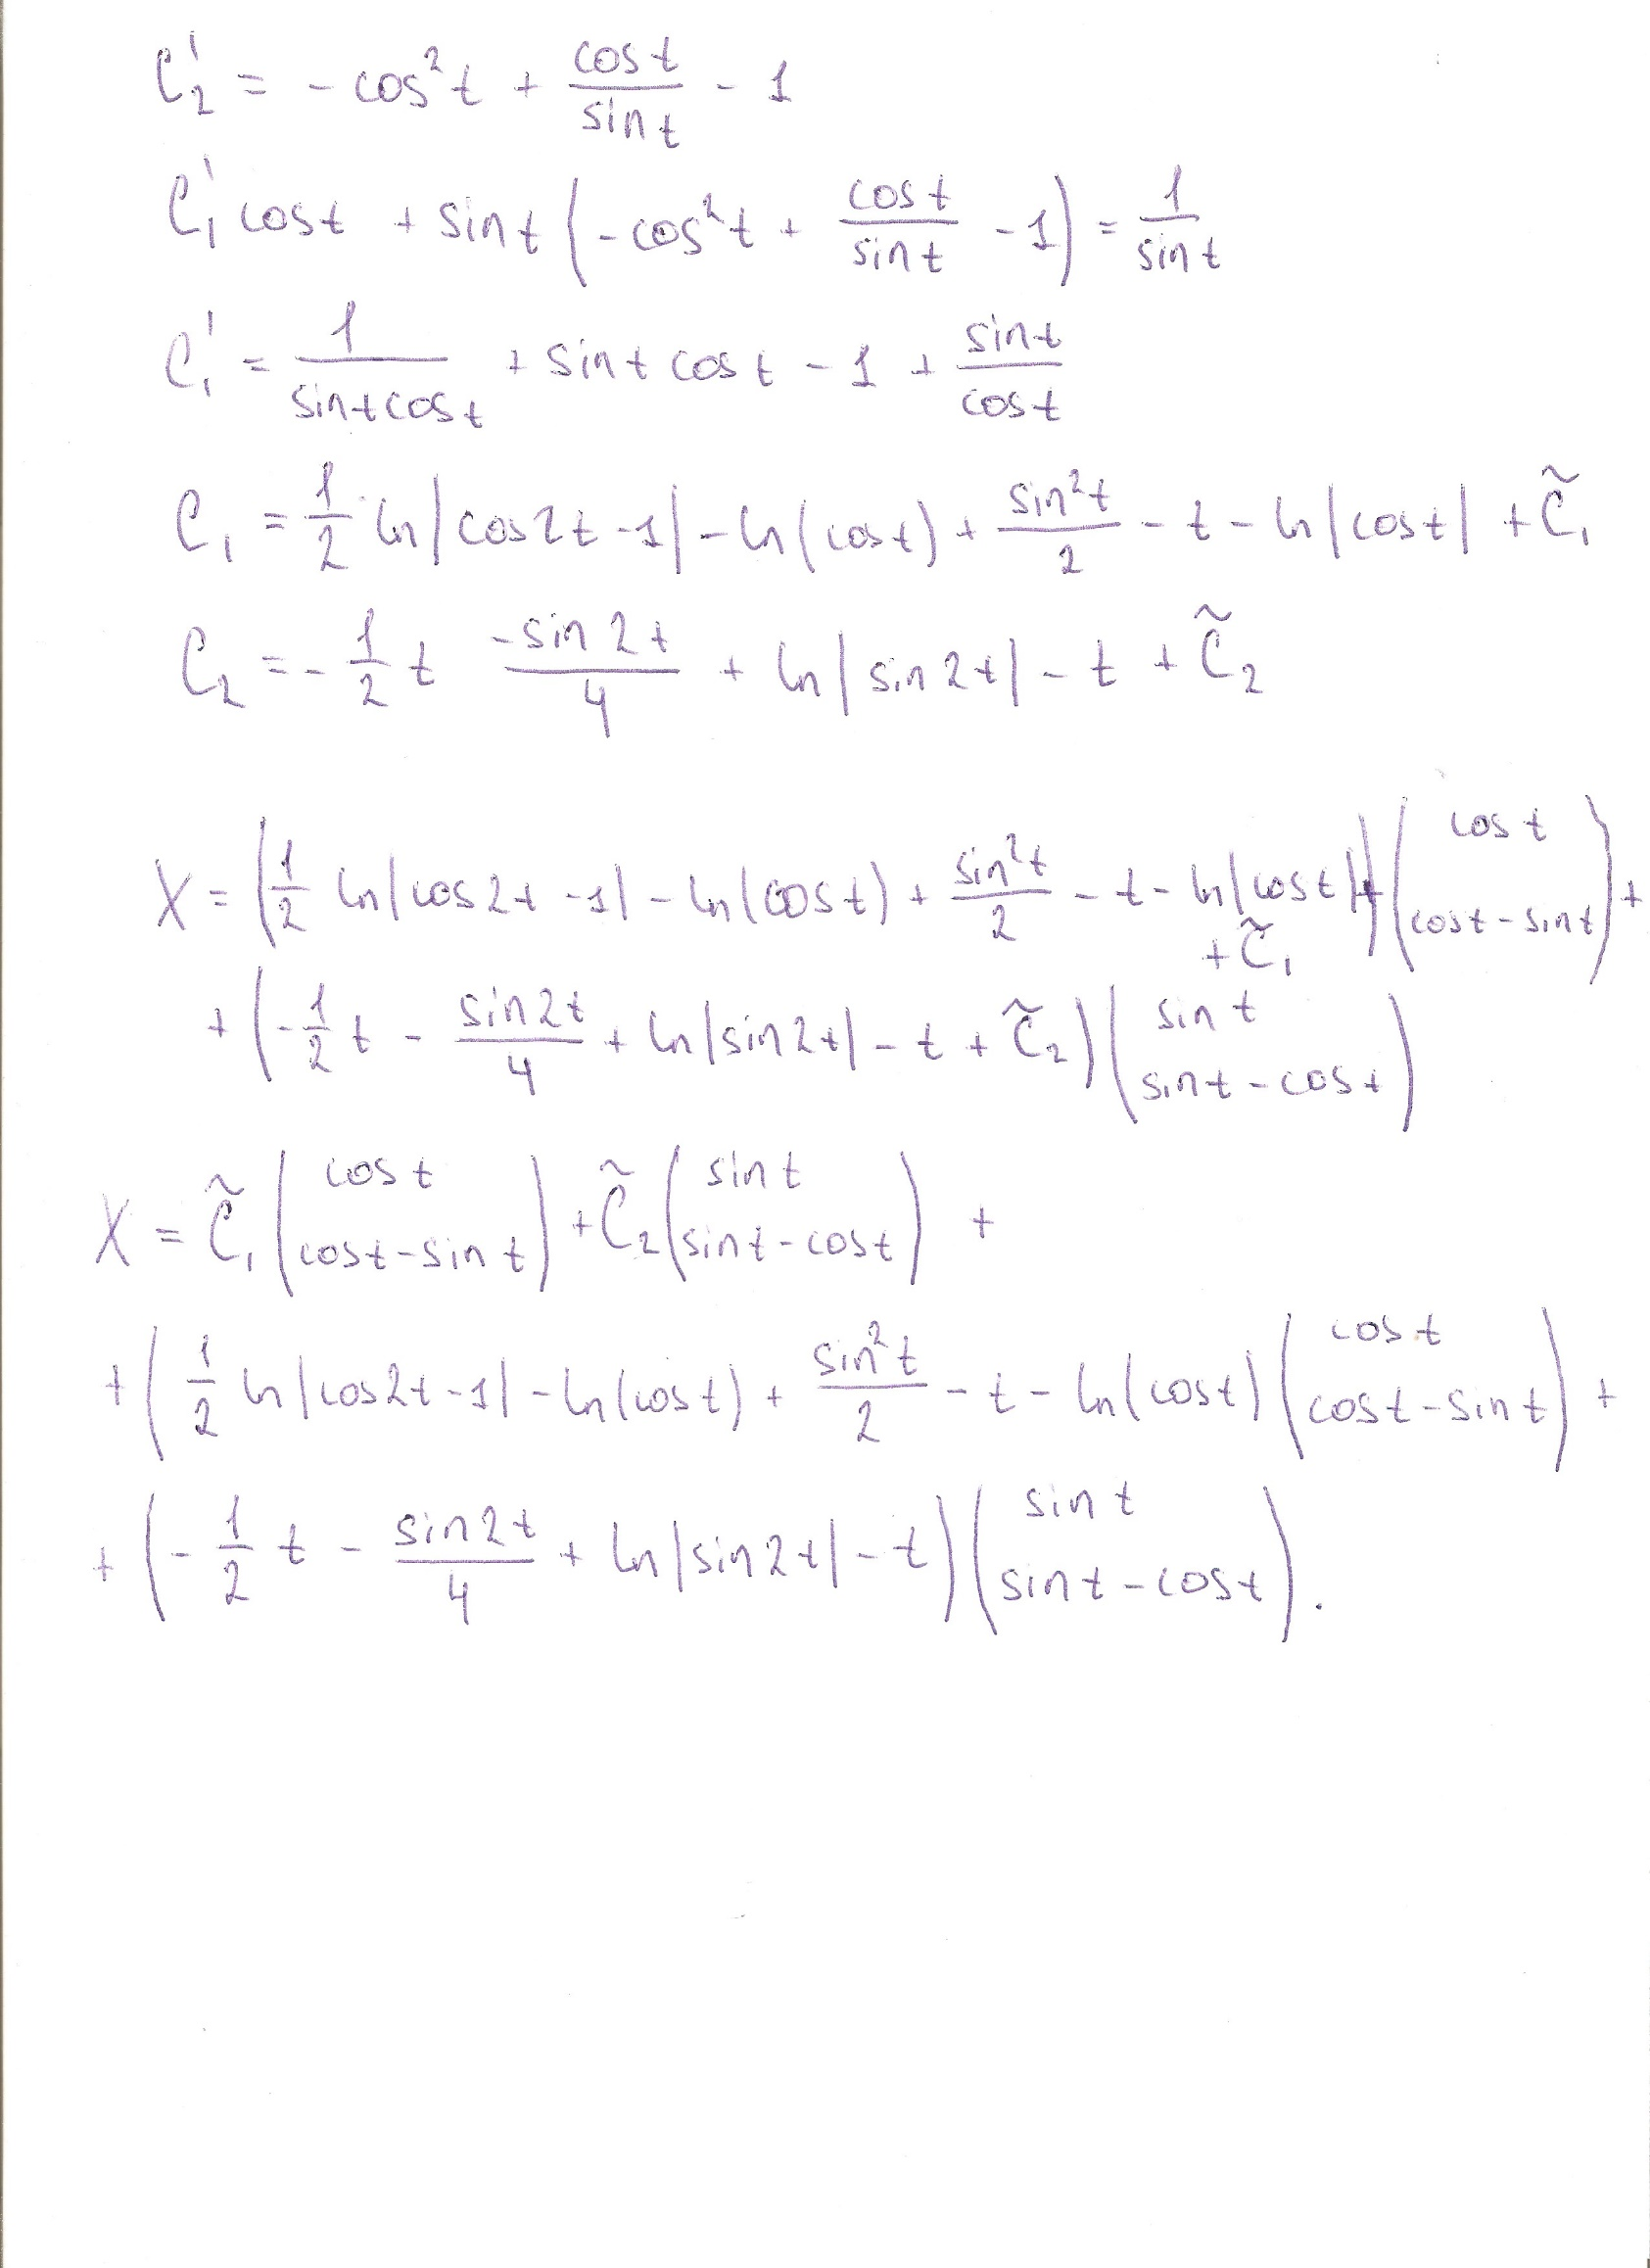 C₂' = - cos²t + cos t / sin t - 1
C₁' cos t + sin t (- cos²t + cos t / sin t - 1) = 1 / sin t
C₁' = 1 / (sin t cos t) + sin t cos t - 1 + sin t / cos t
C₁ = 1/2 ln|cos 2t - 1| - ln(cos t) + sin²t / 2 - t - ln|cos t| + C̃₁
C₂ = - 1/2 t - sin 2t / 4 + ln|sin 2t| - t + C̃₂
X = (1/2 ln|cos 2t - 1| - ln(cos t) + sin²t / 2 - t - ln|cos t| + C̃₁) (cos t ; cos t - sin t) +
+ (- 1/2 t - sin 2t / 4 + ln|sin 2t| - t + C̃₂) (sin t ; sin t - cos t)
X = C̃₁ (cos t ; cos t - sin t) + C̃₂ (sin t ; sin t - cos t) +
+ (1/2 ln|cos 2t - 1| - ln(cos t) + sin²t / 2 - t - ln(cos t) (cos t ; cos t - sin t) +
+ (- 1/2 t - sin 2t / 4 + ln|sin 2t| - t) (sin t ; sin t - cos t).